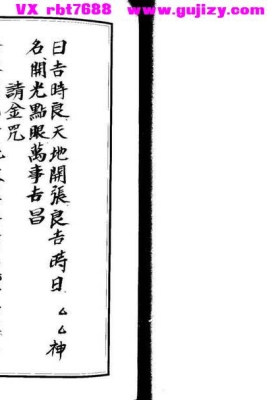 VX rbt7688 www.gujizy.com
日吉時良天地開張良吉時日厶厶神
名開光點眼萬事吉昌
請金咒